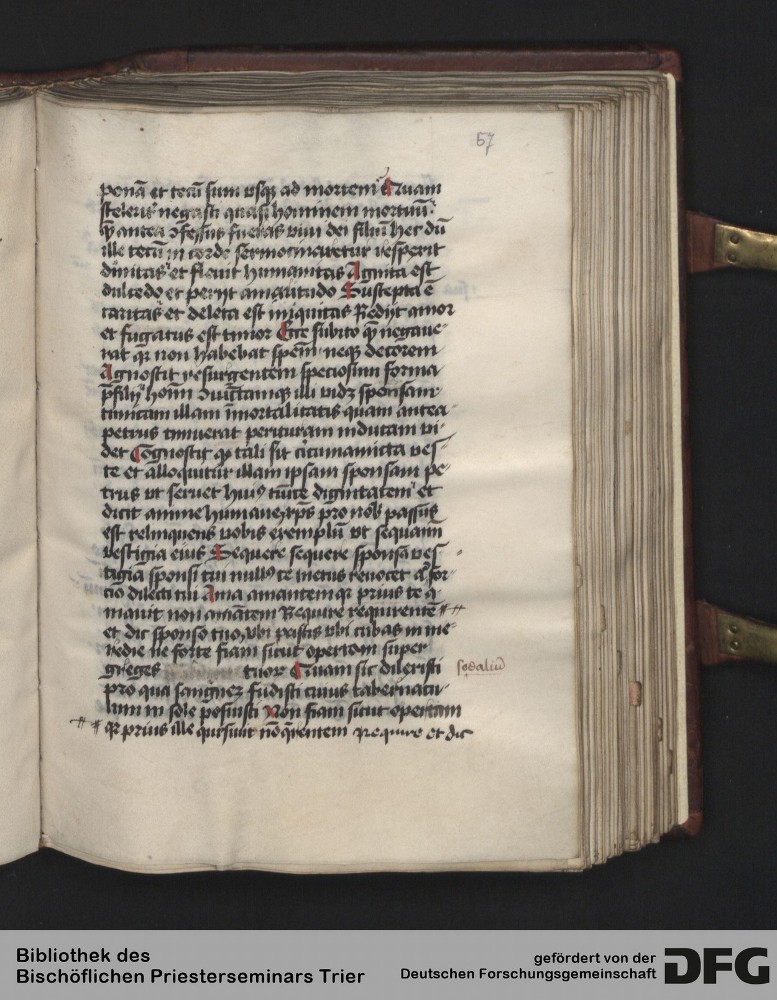 57
penā et tecū sum vsqꝫ ad mortem Quam
sceleris negasti quasi hominem mortuū
qꝫ antea ꝯfessus fueras viui dei filiū hec dū
ille tecū in corde sermocinaretur vesperit
diuinitas et fleuit humanitas Agnita est
dulcedo et perijt amaritudo Suscepta ē
caritas et deleta est iniquitas Redijt amor
et fugatus est timor Ecce subito qꝫ negaue-
rat qꝛ non habebat spēm neqꝫ decorem
Agnoscit resurgentem speciosum forma
p̄ filijs hoīm illi videt sponsam
tunicam illam īmortalitatis quam antea
petrus timuerat perituram indutam vi-
det Cognoscit qꝫ tali sit circumamicta ves-
te et alloquitur illam ipsam sponsam pe-
trus vt seruet huiꝰ tunice dignitatem et
dicit anime humane xp̄s pro nob passus
est relinquens vobis exemplū vt sequamī
vestigia eius Sequere sequere sponsa ves-
tigia sponsi tui nullꝰ te metus reuocet a ꝯsor-
cio dilecti tui Ama amantem qꝛ prius te a-
mauit non amātem Require requirente
et dic sponso tuo, vbi pascis vbi cubas in me-
ridie ne forte fiam sicut operiom super
greges tuor Quam sic dilexisti sodaliū
pro qua sanguinē fudisti cuius tabernacu-
lum in sole posuisti Non fiam sicut operiam
qꝛ prius ille quesiuit nō q̄rentem Require et dic
Bibliothek des
Bischöflichen Priesterseminars Trier
gefördert von der
Deutschen Forschungsgemeinschaft
DFG